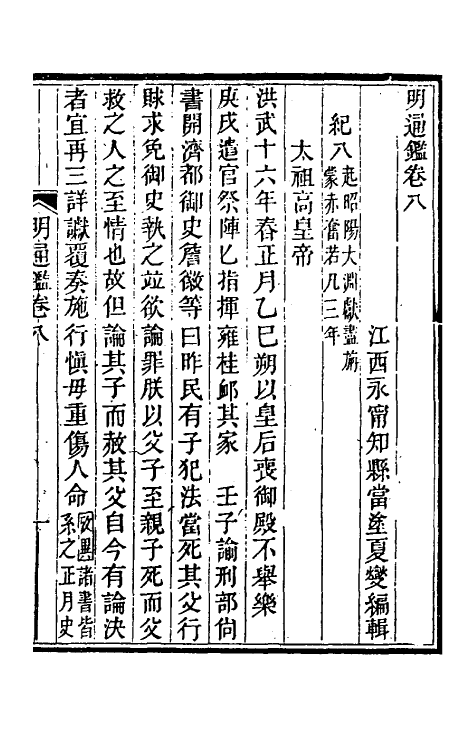 明通鑑卷八
江西永甯知縣當塗夏燮編輯
紀八起昭陽大淵獻盡旃
蒙赤奮若凡三年
太祖高皇帝
洪武十六年春正月乙巳朔以皇后喪御殿不舉樂
庚戌遣官祭陣亡指揮雍桂卹其家　壬子諭刑部尙
書開濟都御史詹徽等曰昨民有子犯法當死其父行
賕求免御史執之竝欲論罪朕以父子至親子死而父
救之人之至情也故但論其子而赦其父自今有論決
者宜再三詳讞覆奏施行愼毋重傷人命
諸書皆
系之正月史
明通鑑卷八
一